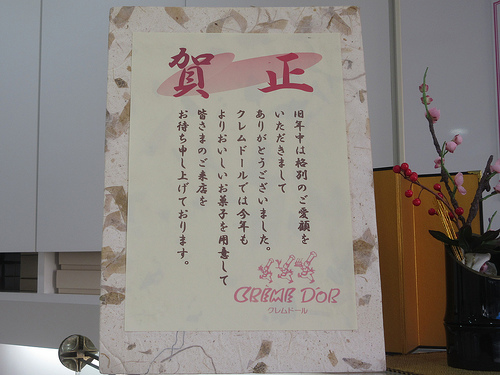 賀正
旧年中は格別のご愛顧を
いただきまして
ありがとうございました。
クレムドールでは今年も
よりおいしいお菓子を用意して
皆さまのご来店を
お待ち申し上げております。
CREME D'OR
クレムドール